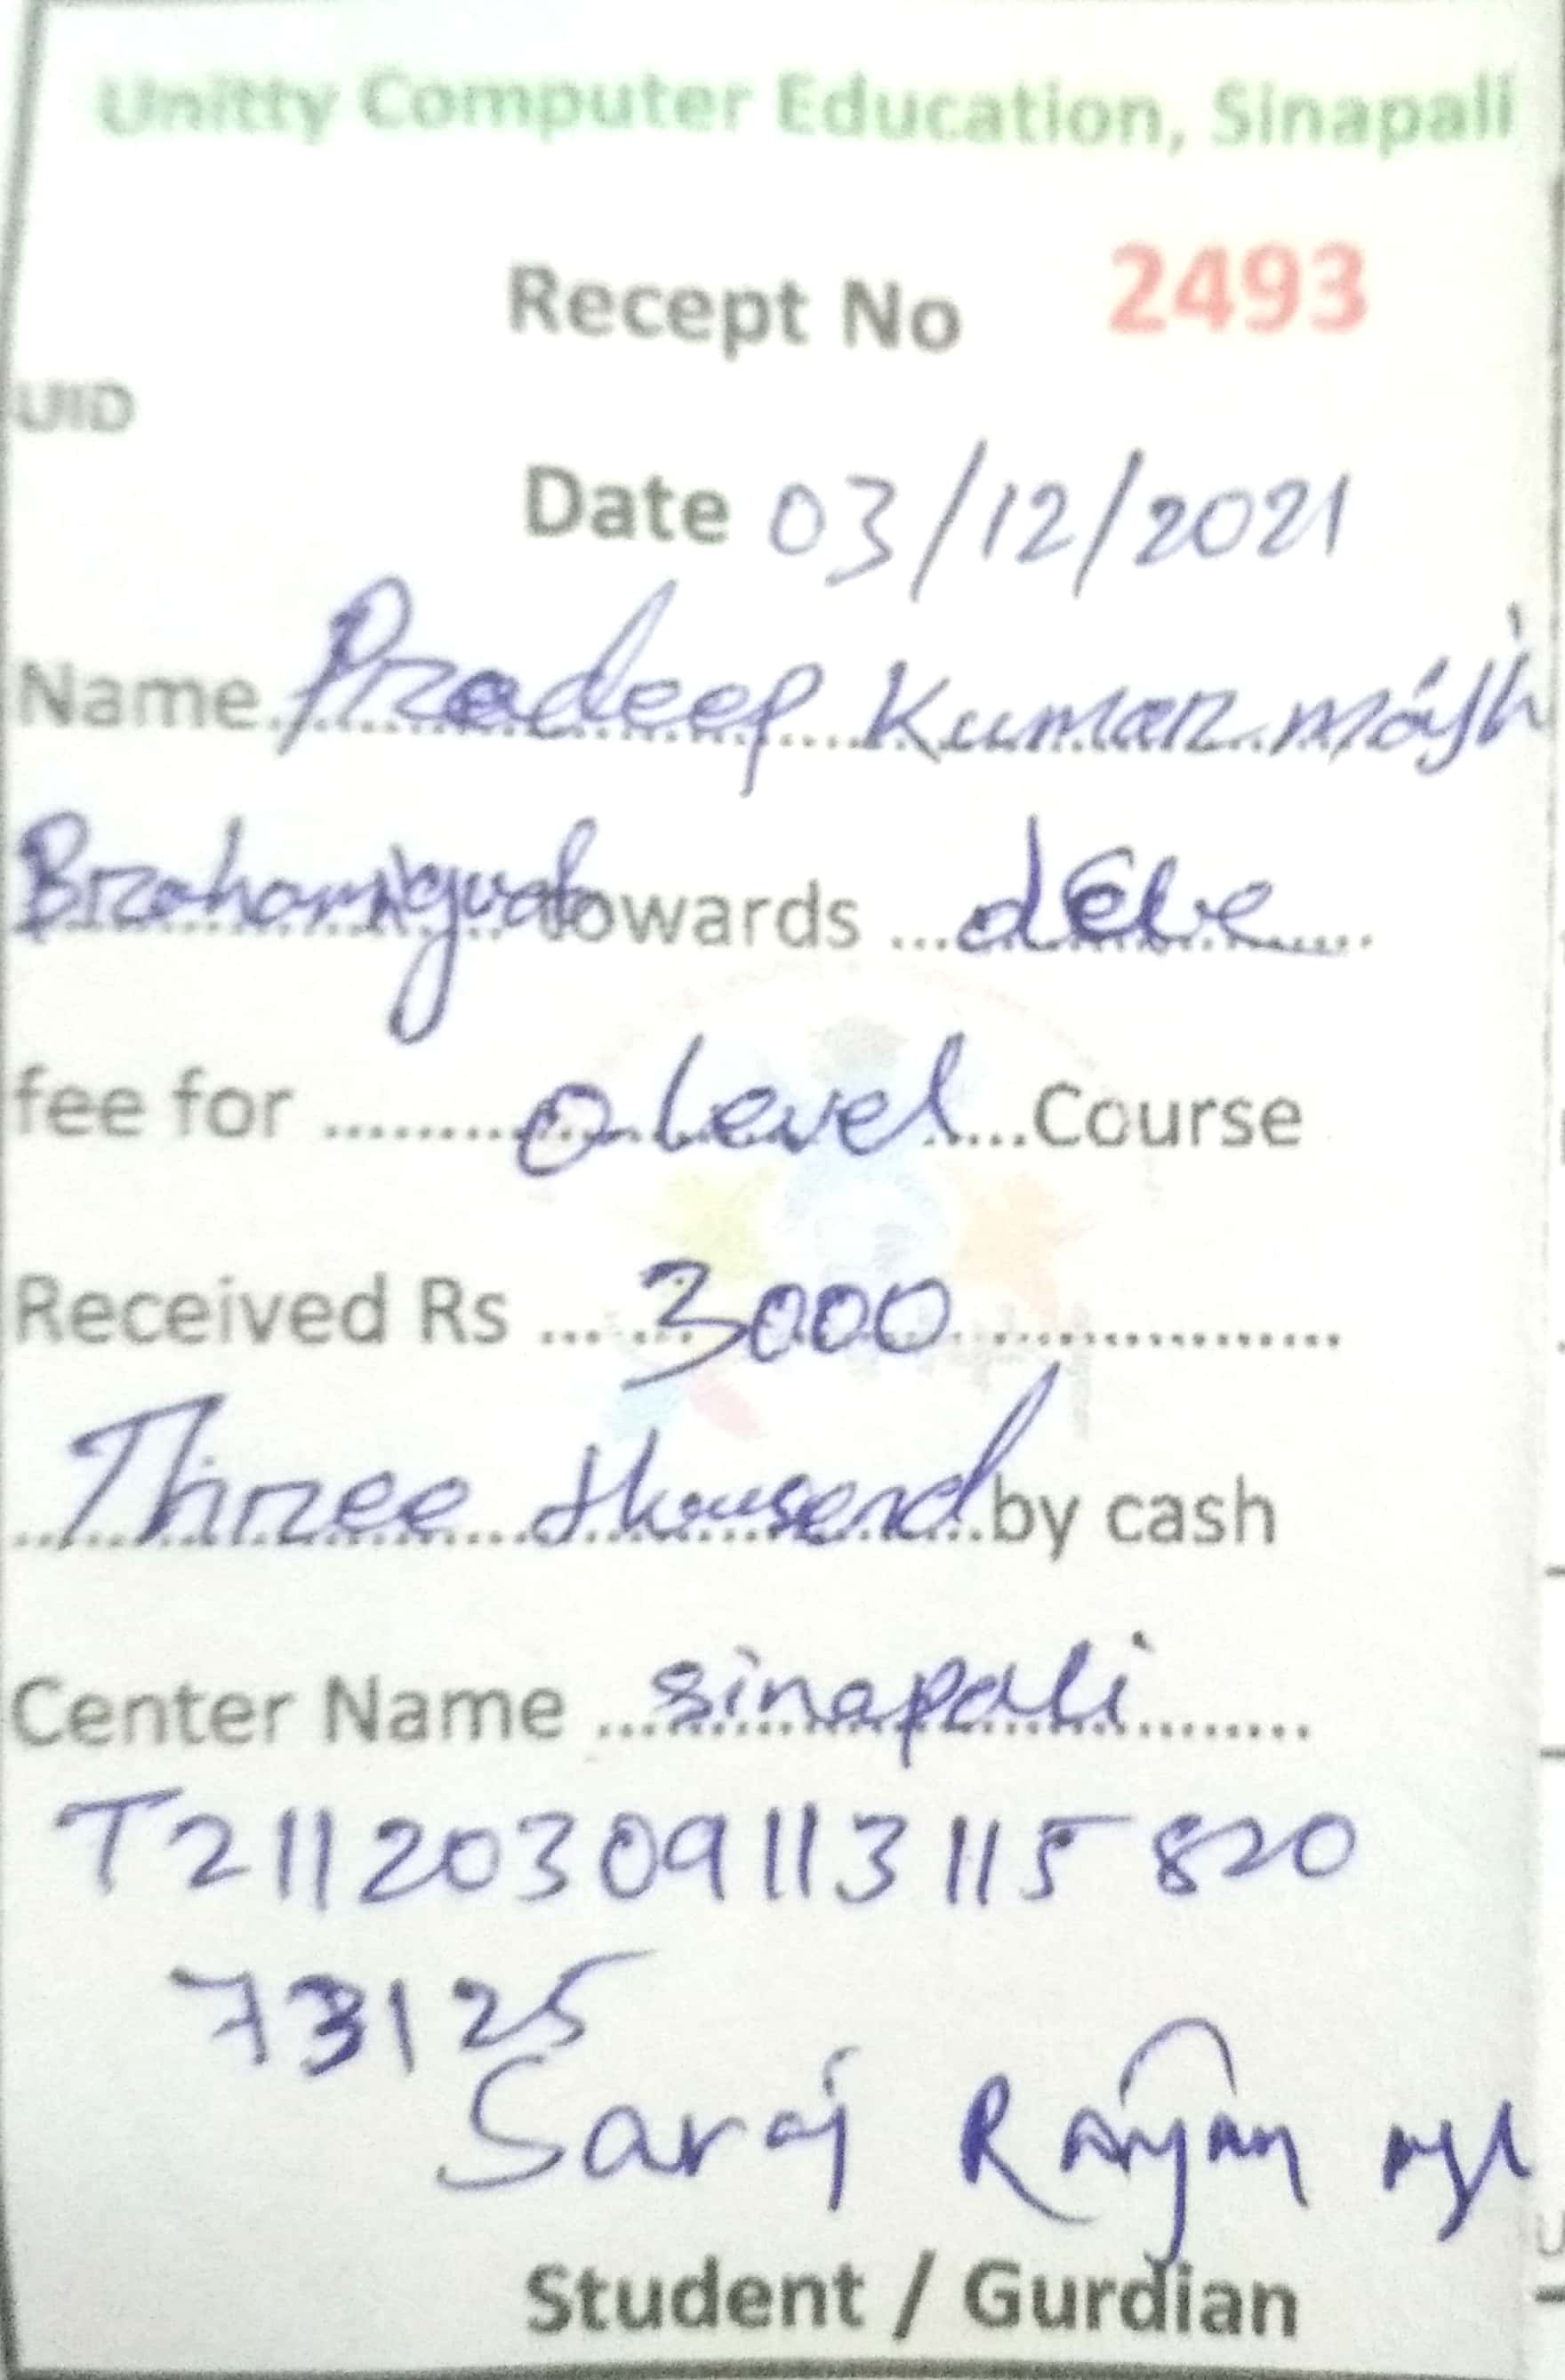 Unitty Computer Education, Sinapali
Recept No 2493
UID
Date 03/12/2021
Name Pradeep Kumar majh
towards
fee for O Level Course
Received Rs 3000
Three thousend by cash
Center Name sinapali
T21120309113115820
73125
Saroj Ranjan
Student / Gurdian